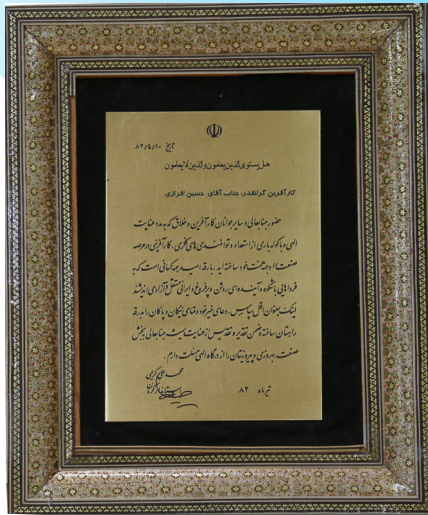 تاریخ ۸۲/۴/۱۰
هل یستوی الذین یعلمون والذین لایعلمون
کارآفرین گرانقدر، جناب آقای حسین افرازی
حضور جنابعالی و سایر جوانان کارآفرین و خلاق که به مدد عنایت
الهی و با کوله باری از استعداد و توانمندی های فکری، کارآفرینی در عرصه
صنعت را وجهه همت خود ساخته اید، بارقه امید همه کسانی است که به
فرداهایی باشکوه و آینده ای روشن و پرفروغ و ایرانی مستقل و آزاد می اندیشند
اینک بعنوان اقل سپاس، دعای خیر خود و تمامی نیکان و پاکان را بدرقه
راهتان ساخته و ضمن تقدیر و تقدیس از عنایت جنابعالی به بخش
صنعت، بهروزی و پیروزیتان را از درگاه الهی مسئلت دارم.
تیرماه ۸۲